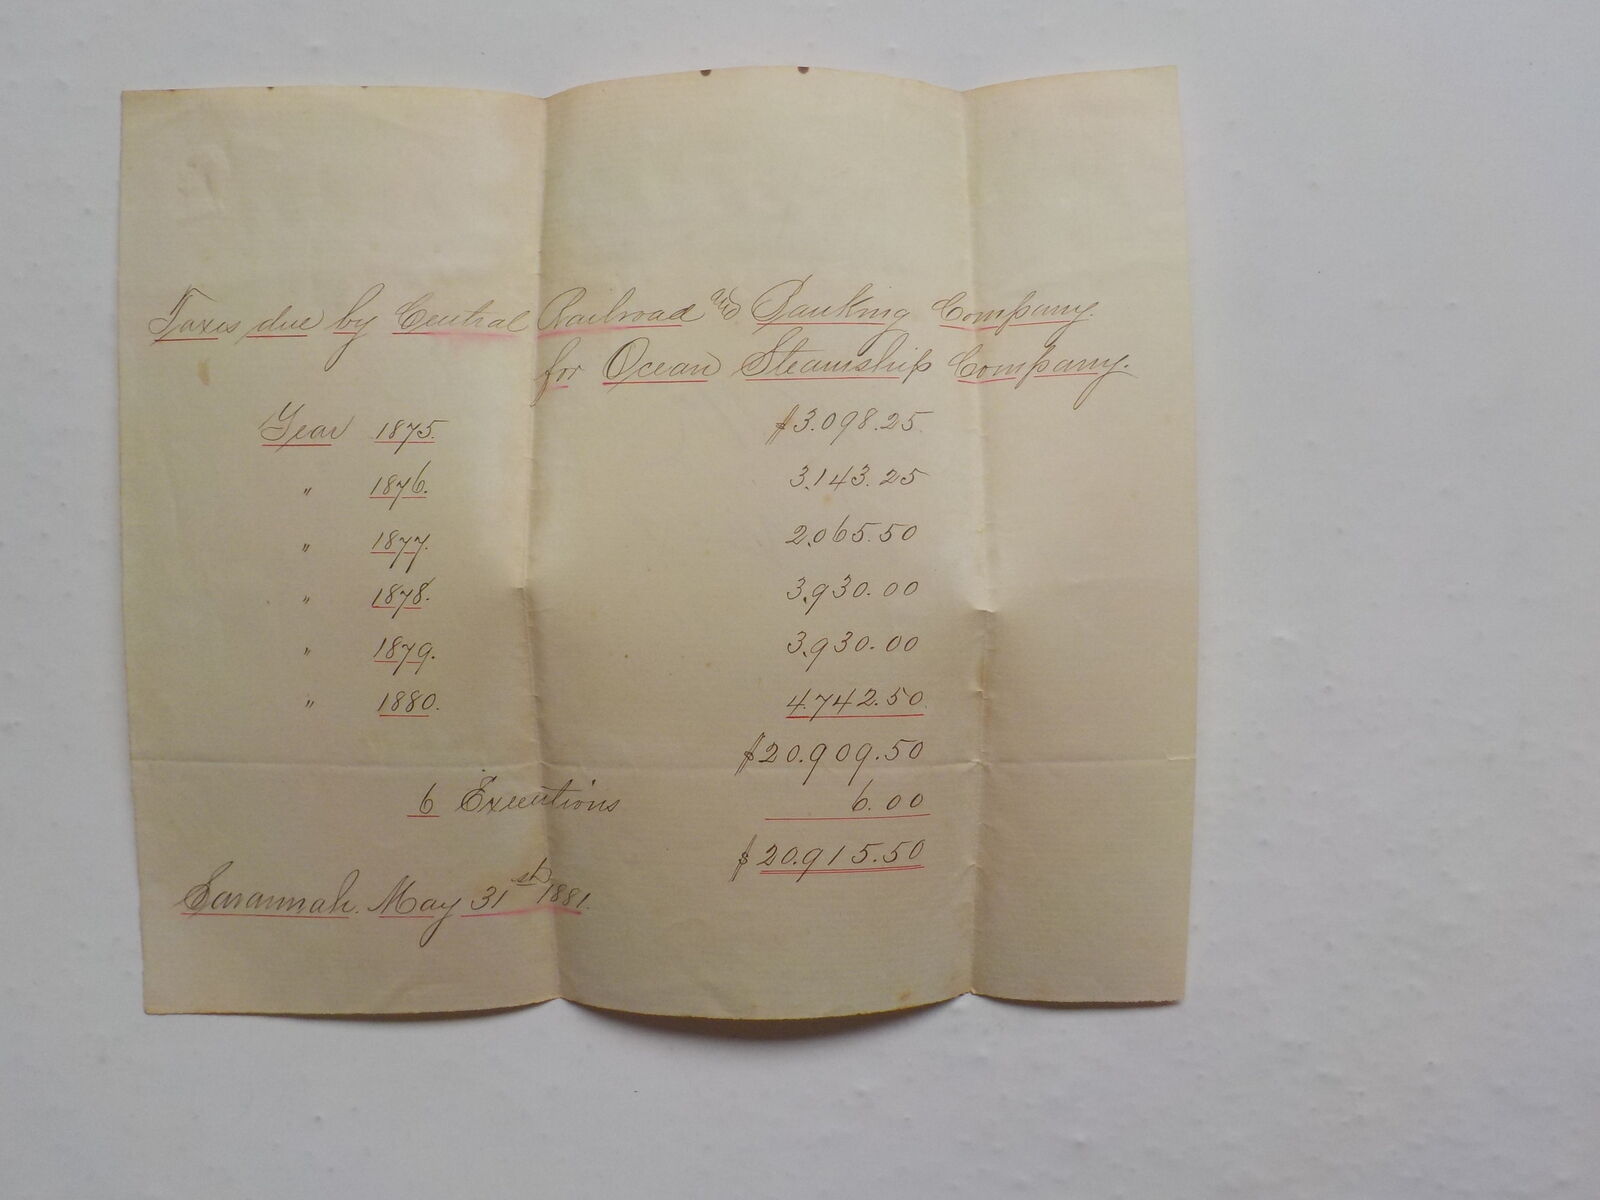 Taxes due by Central Railroad and Banking Company.
for Ocean Steamship Company.
Year 1875. $3.098.25
" 1876. 3,143.25
" 1877. 2,065.50
" 1878. 3,930.00
" 1879. 3,930.00
" 1880. 4.742.50
$20.909.50
6 Executions 6.00
$20.915.50
Savannah. May 31st 1881.